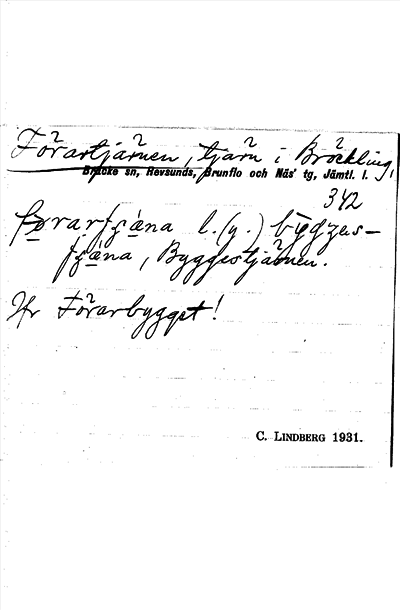 Förartjärnen, tjärn i Bröckling,
Bräcke sn, Revsunds, Brunflo och Näs' tg, Jämtl. l.
342
l. (y.)
Byggestjärnen.
Jfr Förarbygget!
C. LINDBERG 1931.